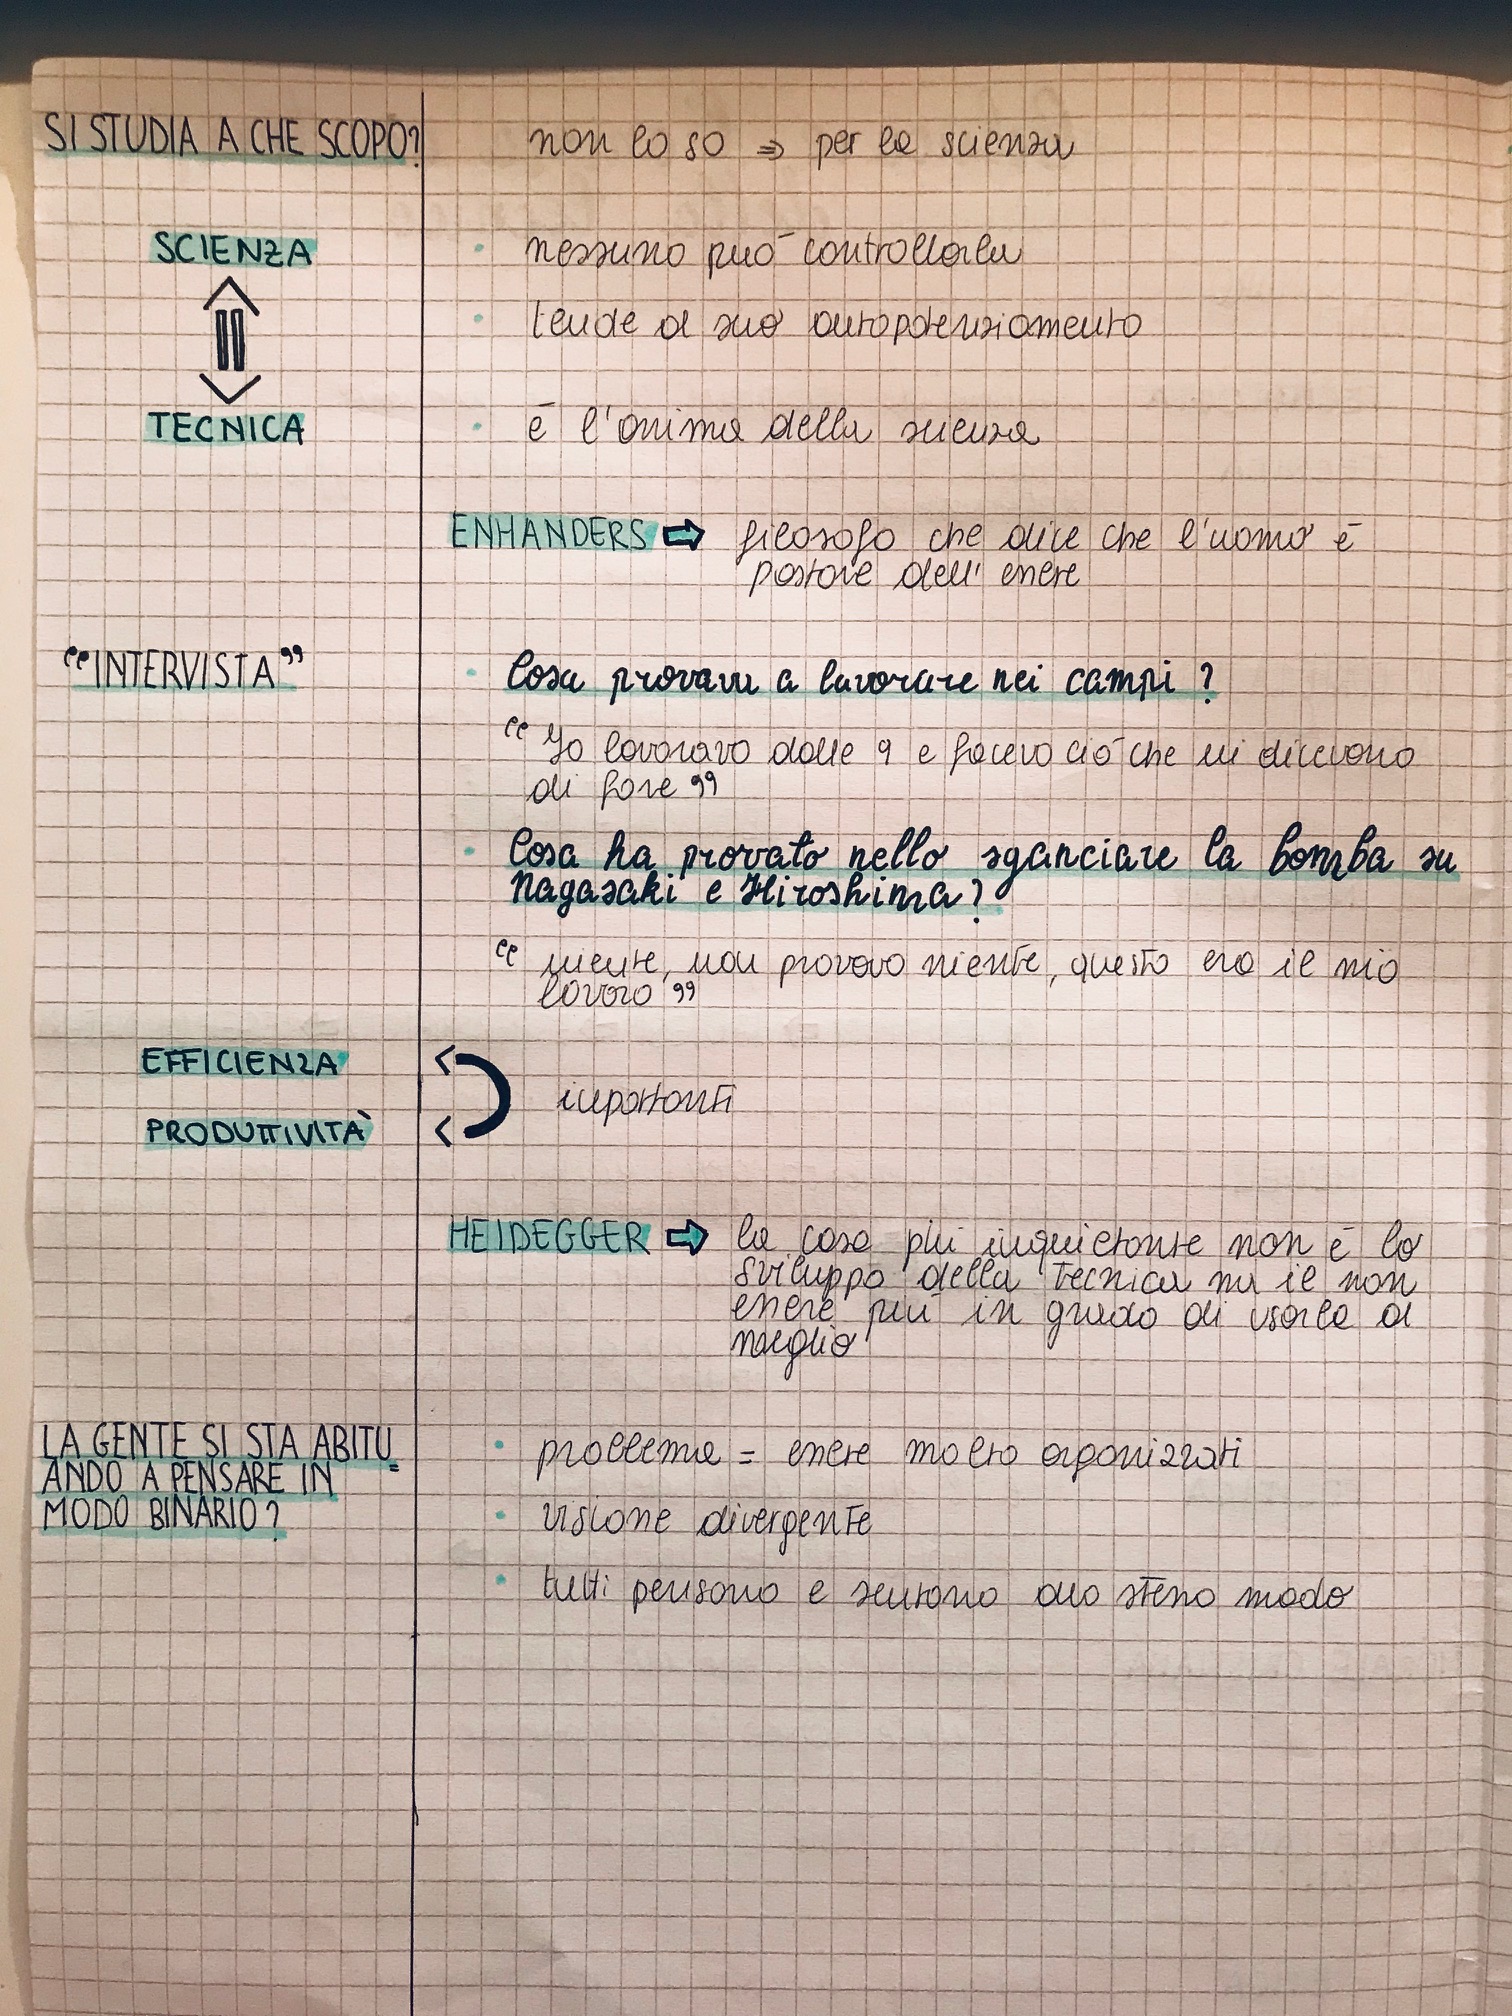 SI STUDIA A CHE SCOPO?
non lo so ⇒ per la scienza
SCIENZA
• nessuno può controllarla
• tende al suo autopotenziamento
TECNICA
• è l'anima della scienza
ENHANDERS ⇒ filosofo che dice che l'uomo è
pastore dell'essere
“INTERVISTA”
• Cosa provava a lavorare nei campi?
“Io lavoravo dalle 9 e facevo ciò che mi dicevano
di fare”
• Cosa ha provato nello sganciare la bomba su
Nagasaki e Hiroshima?
“niente, non provavo niente, questo era il mio
lavoro”
EFFICIENZA
importanti
PRODUTTIVITÀ
HEIDEGGER ⇒ la cosa più inquietante non è lo
sviluppo della tecnica ma il non
essere più in grado di usarla al
meglio
LA GENTE SI STA ABITU=
ANDO A PENSARE IN
MODO BINARIO?
• problema = essere molto organizzati
• visione divergente
• tutti pensano e sentono allo stesso modo